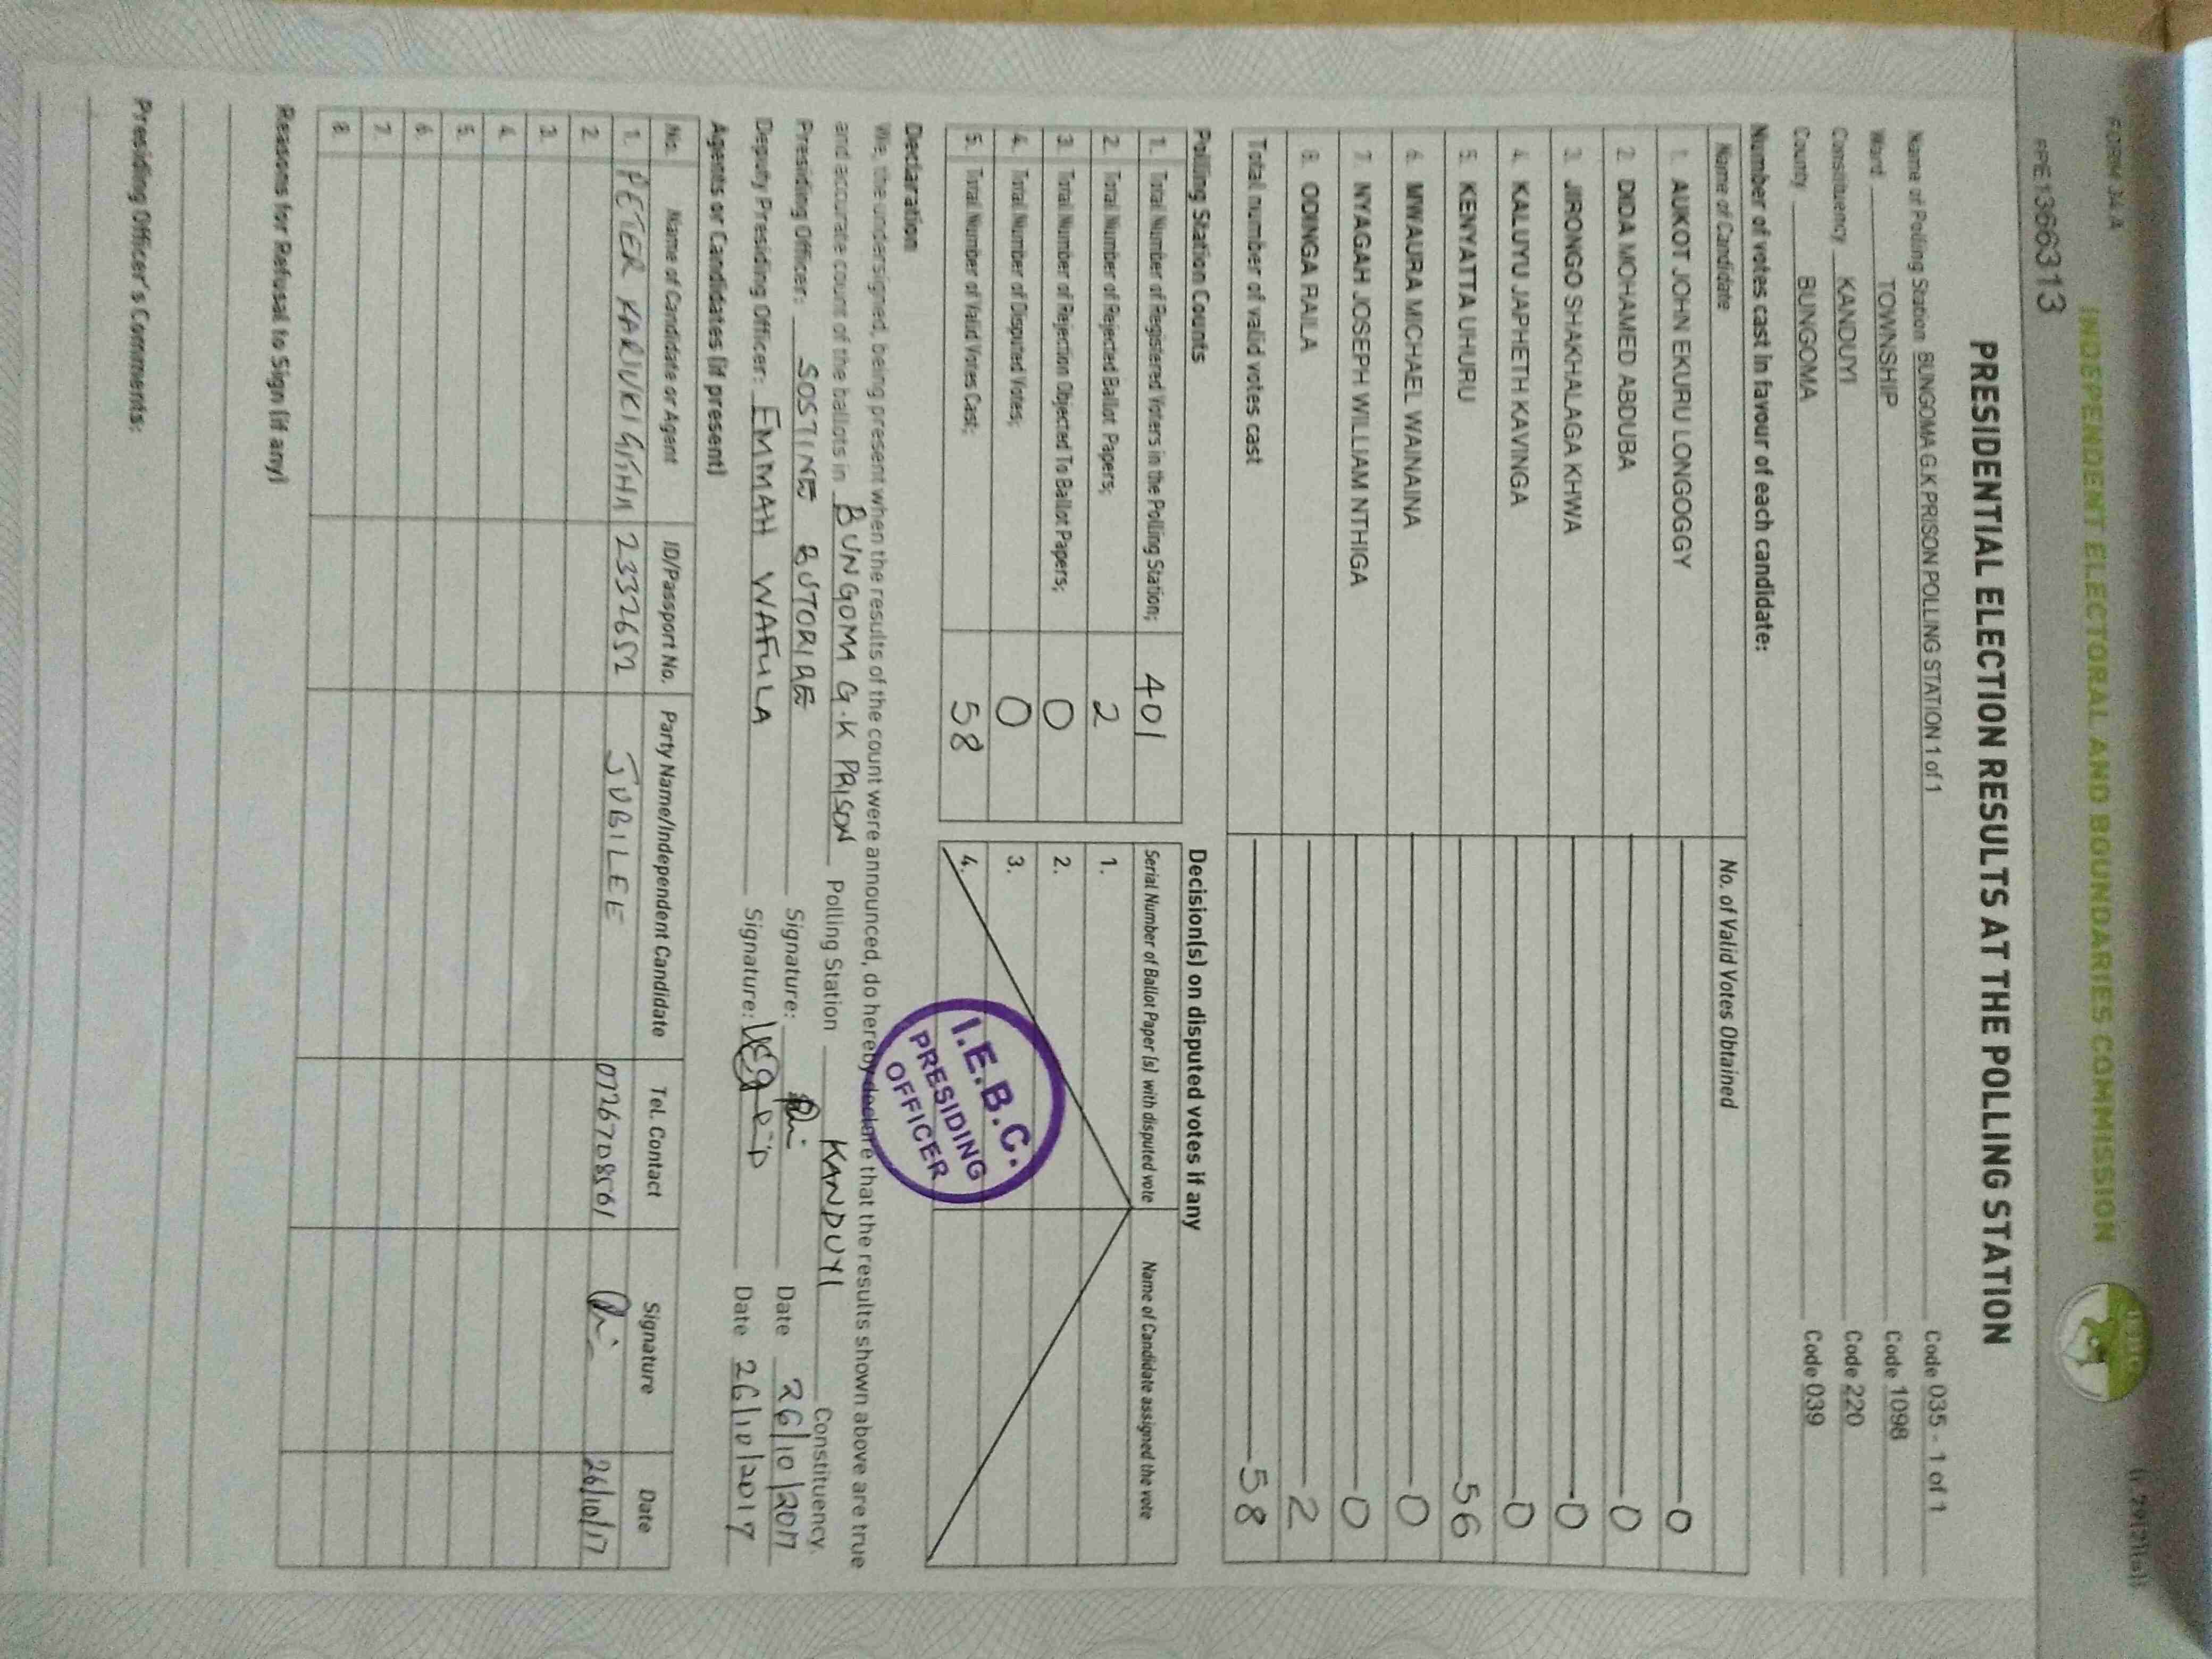 FORM 34A
INDEPENDENT ELECTORAL AND BOUNDARIES COMMISSION
PRE1366313
PRESIDENTIAL ELECTION RESULTS AT THE POLLING STATION
Name of Polling Station BUNGOMA G.K PRISON POLLING STATION 1 of 1 Code 035 - 1 of 1
Ward TOWNSHIP Code 1098
Constituency KANDUYI Code 220
County BUNGOMA Code 039
Number of votes cast in favour of each candidate:
Name of Candidate No. of Valid Votes Obtained
1. AUKOT JOHN EKURU LONGOGGY 0
2. DIDA MOHAMED ABDUBA 0
3. JIRONGO SHAKHALAGA KHWA 0
4. KALUYU JAPHETH KAVINGA 0
5. KENYATTA UHURU 56
6. MWAURA MICHAEL WAINAINA 0
7. NYAGAH JOSEPH WILLIAM NTHIGA 0
8. ODINGA RAILA 2
Total number of valid votes cast 58
Polling Station Counts
1. Total Number of Registered Voters in the Polling Station; 401
2. Total Number of Rejected Ballot Papers; 2
3. Total Number of Rejection Objected To Ballot Papers; 0
4. Total Number of Disputed Votes; 0
5. Total Number of Valid Votes Cast; 58
Decision(s) on disputed votes if any
Serial Number of Ballot Paper (s) with disputed vote Name of Candidate assigned the vote
1.
2.
3.
4.
I.E.B.C.
PRESIDING
OFFICER
Declaration
We, the undersigned, being present when the results of the count were announced, do hereby declare that the results shown above are true
and accurate count of the ballots in BUNGOMA G.K PRISON Polling Station KANDUYI Constituency.
Presiding Officer: SOSTINE Signature: Date 26/10/2017
Deputy Presiding Officer: EMMAH WAFULA Signature: Date 26/10/2017
Agents or Candidates (if present)
No. Name of Candidate or Agent ID/Passport No. Party Name/Independent Candidate Tel. Contact Signature Date
1. PETER KARIUKI 23372652 JUBILEE 0726708561 26/10/17
2.
3.
4.
5.
6.
7.
8.
Reasons for Refusal to Sign (if any)
Presiding Officer's Comments: